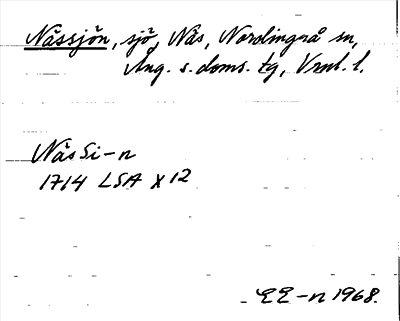 Nässjön, sjö, Näs, Nordingrå sn,
Ång. s. doms. tg, Vrnl. l.
Näs Si-n
1714 LSA X 12
EE-n 1968.